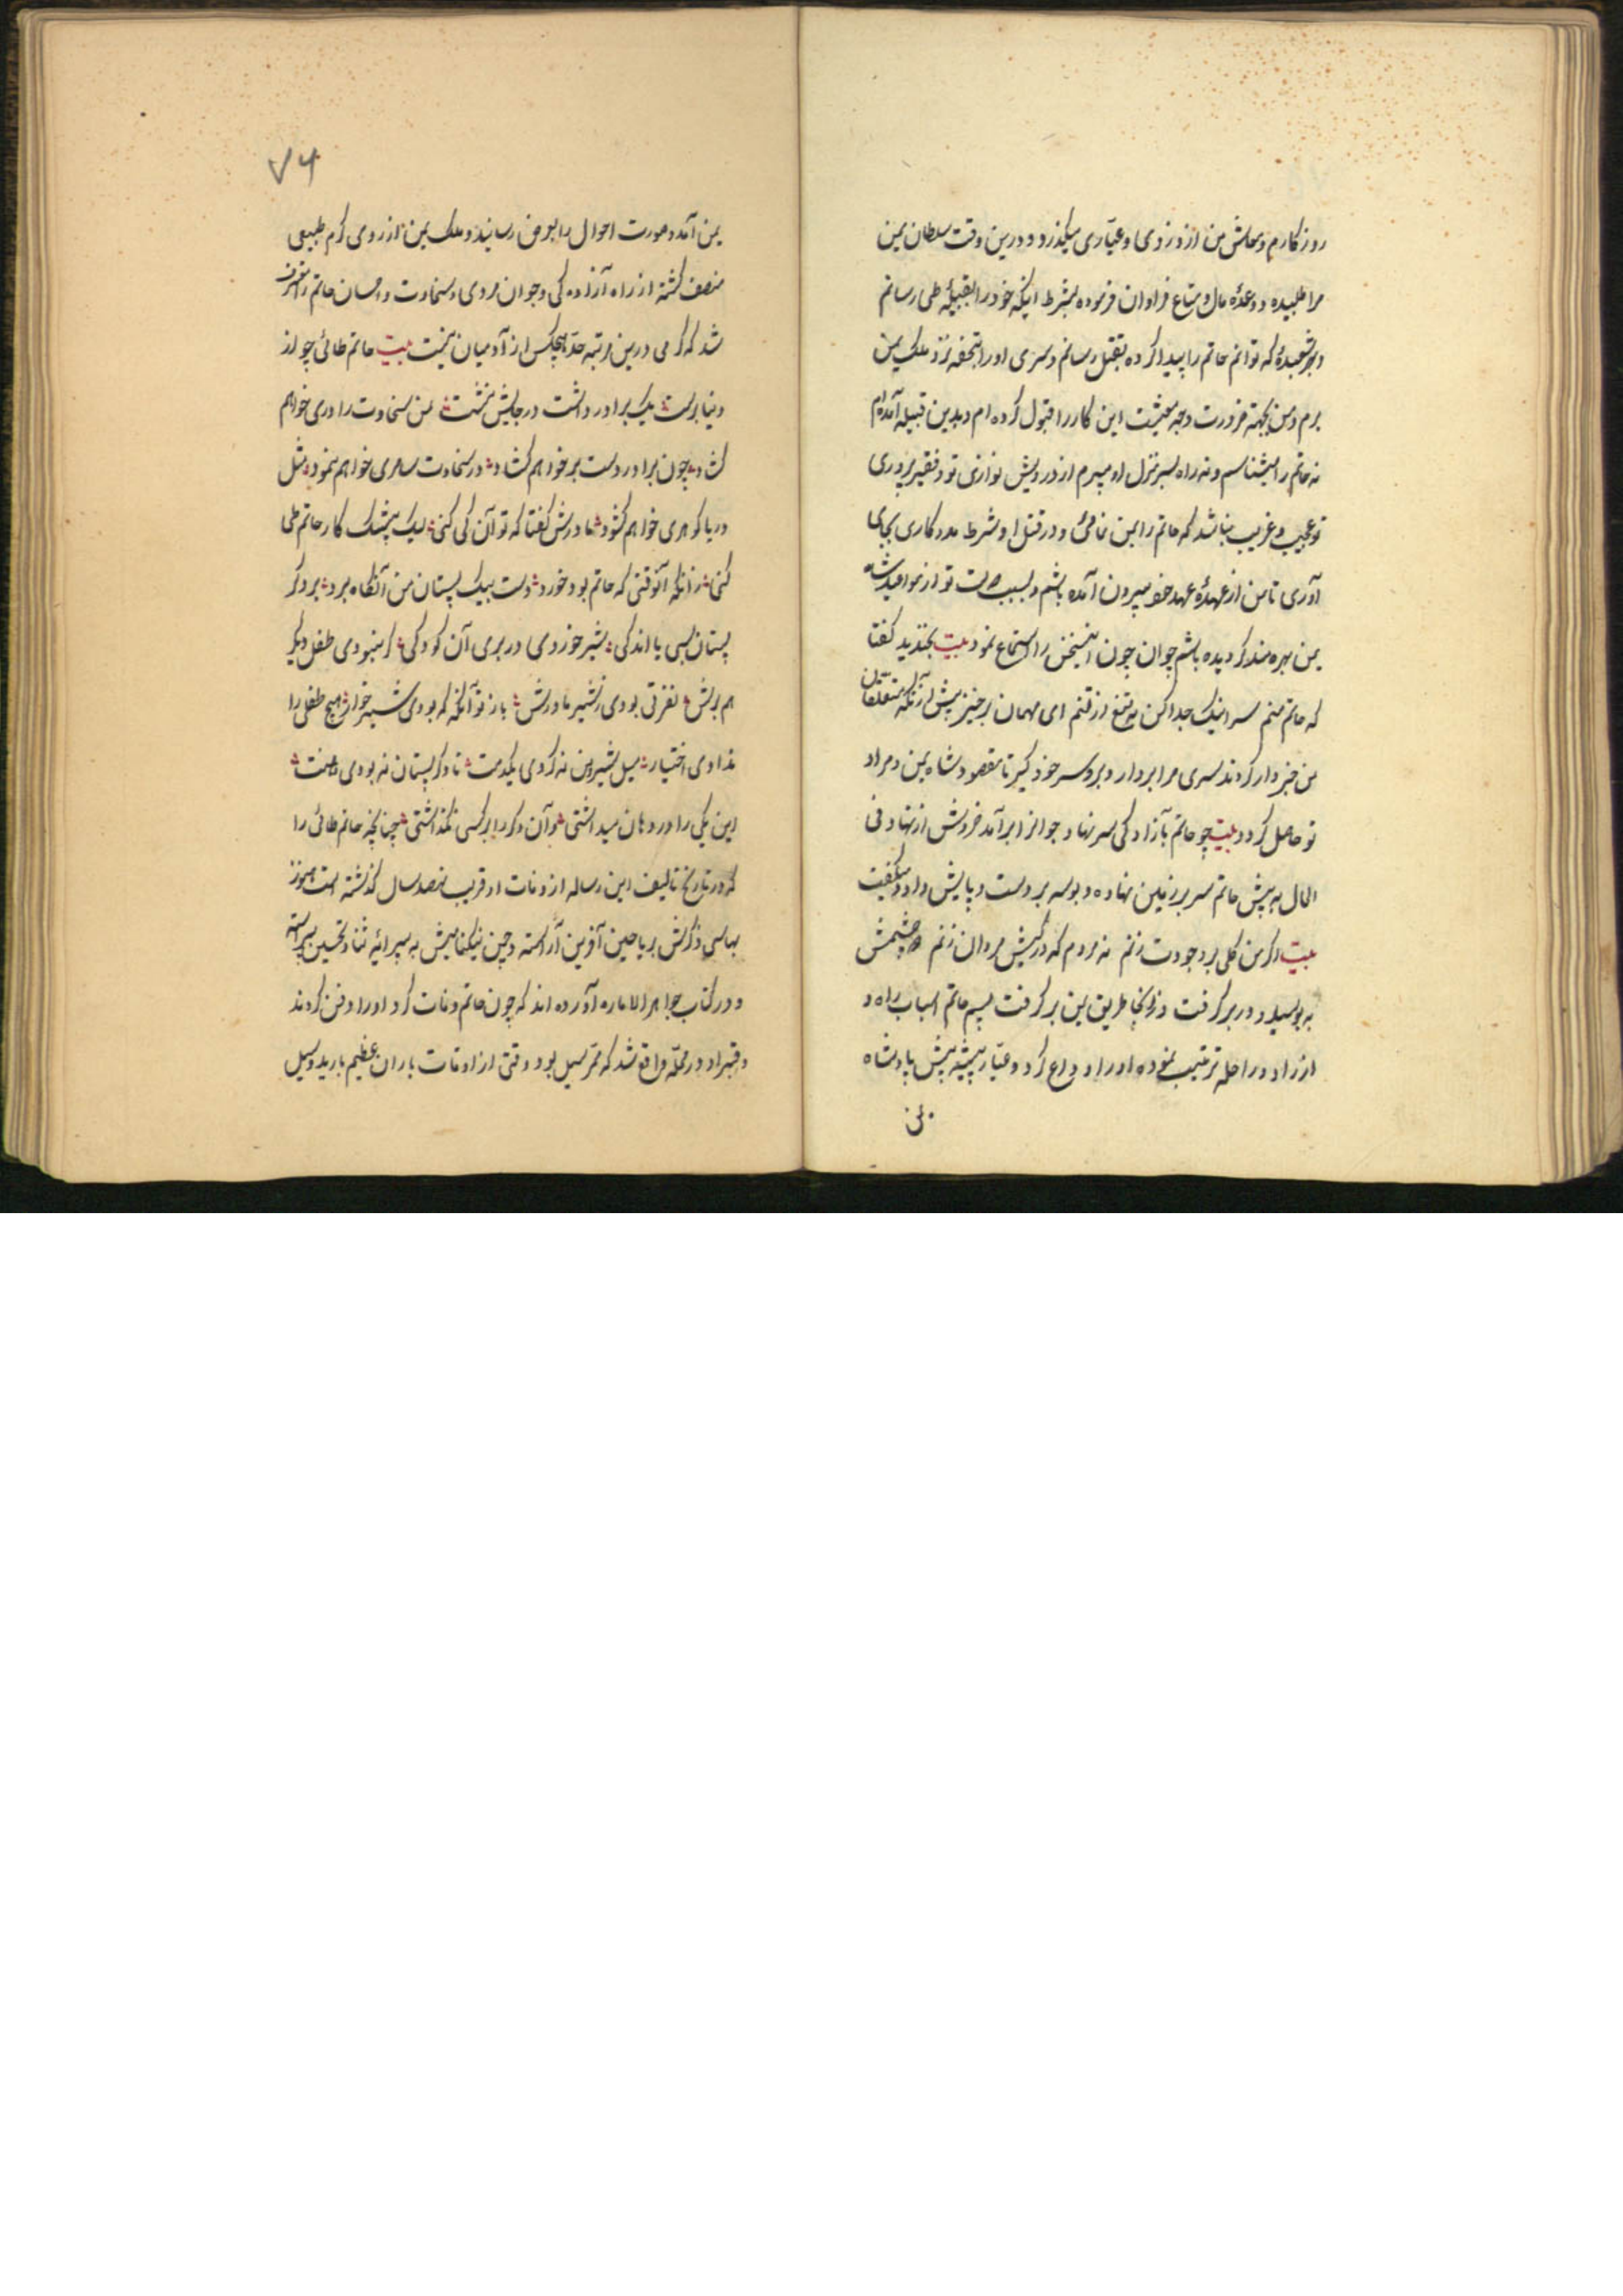 روزکارم و معاش من از دزدی و عیّاری میکذرد و درین وقت سلطان یمن
مرا طلبیده و وعدهٔ مال و متاع فراوان فرموده بشرط اینکه خود را بقبیلهٔ طی رسانم
و بهر شعبدهٔ که توانم حاتم را پیدا کرده بقتل رسانم و سری او را بتحفه نزد ملک یمن
برم و من بجهته ضرورت وجه معیشت این کار را قبول کرده ام و بدین قبیله آمده ام
نه حاتم را میشناسم و نه راه بسر منزل او میبرم از درویش نوازی تو و فقیر پروری
تو عجیب و غریب نباشد که حاتم را بمن نمائی و در قتل او شرط مددکاری بجای
آوری تا من از عهدهٔ عهد خود بیرون آمده باشم و بسبب تو از مواعید شاه
یمن بهره مند کردیده باشم جوان چون این سخن را استماع نمود بیت بخندید کفتا
که حاتم منم سر اینک جدا کن به تیغ از تنم ای مهمان برخیز پیش از آنکه متعلقان
من خبردار کردند سری مرا بردار و برو سر خود کیر تا مقصود شاه یمن و مراد
تو حاصل کردد بیت چو حاتم بآزادکی سر نهاد جوانرا برآمد خروش از نهاد فی
الحال به پیش حاتم سر بر زمین نهاده و بوسه بر دست و پایش داد و میکفت
بیت اکر من کلی بر وجودت زنم نه مردم که در کیش مردان زنم دو چشمش
به بوسید و در بر کرفت وز آنجا طریق یمن بر کرفت پس حاتم اسباب راه و
از زاد و راحله ترتیب نموده او را وداع کرد و عیّار پیشه پیش پادشاه
یمن
۷۶
یمن آمد و صورت احوال را بعرض رسانید و ملک یمن از روی کرم طبیعی
منصف کشته از راه آزاده کی و جوان مردی و سخاوت و احسان حاتم را معترف
شد که کرمی درین مرتبه حدّ هیچکس از آدمیان نیست بیت حاتم طائی چو از
دنیا برست یک برادر داشت در جایش نشست من سخاوت را دری خواهم
کشاد چون برادر دست بر خواهم کشاد در سخاوت ساحری خواهم نمود مثل
دریا کوهری خواهم کشود مادرش کفتا که تو آن کی کنی لیک بیشک کار حاتم طی
کنی زانکه آنوقتی که حاتم بود خورد دست بیک پستان من آنکاه برد بر دکر
پستان بسی یا اندکی شیر خوردی در بری آن کودکی کر نبودی طفل دیکر
هم برش نفرتی بودی ز شیر مادرش باز تو آنکه که بودی شیر خوار هیچ طفلی را
ندادی اختیار میل بشیر من نه کردی یکدمت تا دکر پستان نه بودی بدست
این یکی را در دهان میداشتی وان دکر را بر کسی نکذاشتی چنانچه حاتم طائی را
که در تاریخ تالیف این رساله از وفات او قریب نهصد سال کذشته است هنوز
بهاسی ذکرش بریاحین آفرین آراسته و چمن نیکنامیش به پیرائیه ثنا و تحسین پیراسته
و در کتاب جواهر الاماره آورده اند که چون حاتم وفات کرد او را دفن کردند
و قبر او در محلّه واقع شد که ممرّ سیل بود وقتی از اوقات باران عظیم بارید و سیل